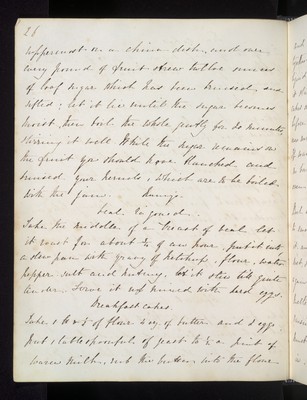 26
uppermost on a china dish, and over
every pound of fruit strew twelve ounces
of loaf sugar which has been bruised, and
sifted; let it lie until the sugar becomes
moist, then boil the whole gently for 30 minutes
stirring it well. While the sugar remains on
the fruit you should have blanched and
bruised your kernels, which are to be boiled
with the jam.
Veal Ragoued
Take the middle of a breast of veal let
it roast for about ¾ of an hour, put it into
a stew pan with gravy of ketchup, flour,
pepper salt and nutmeg, let it stew till quite
tender. Serve it up mixed with hard eggs.
Breakfast cakes.
Take 1 lb & ½ of flour 4 oz of butter and 2 eggs
Put 1 tablespoonful of yeast to ½ a pint of
warm milk, rub the butter into the flour